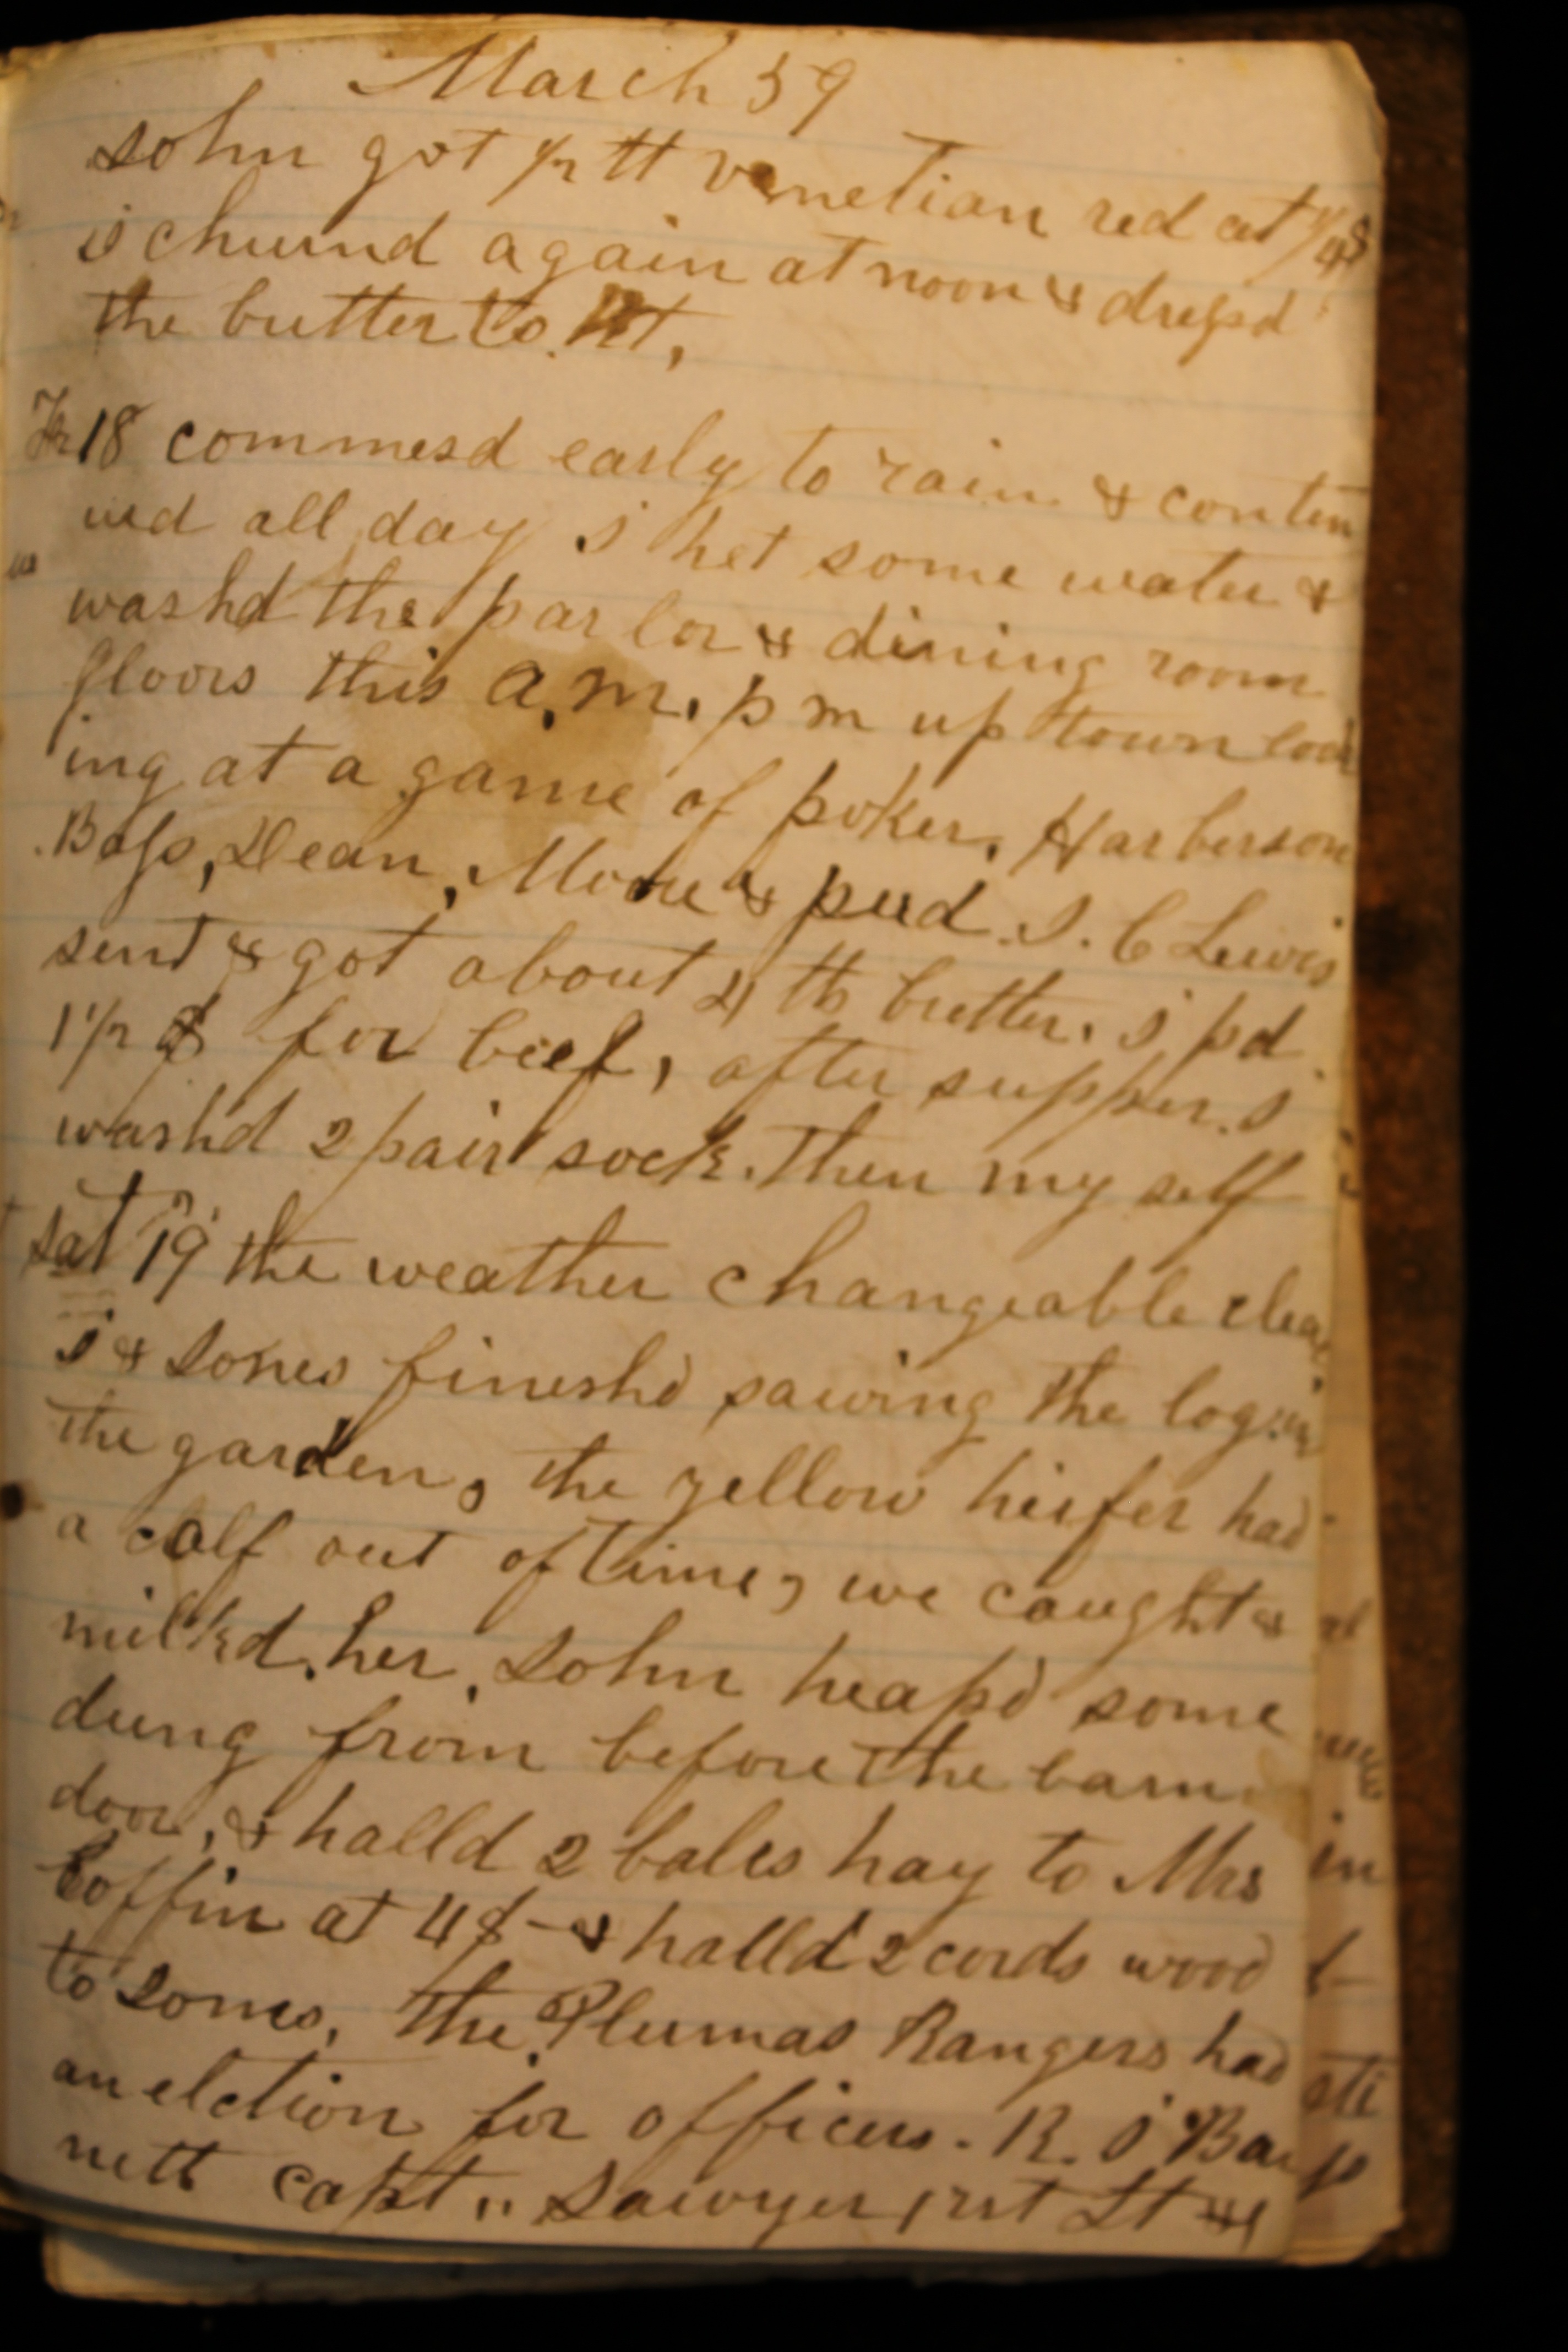 March 59
John got 1/2 tt venetian red at 1/4 $
i churnd again at noon & dressd
the butter to
Fr 18 commesd early to rain & contin
ued all day i het some water &
washd the parlor & dining room
floors this a.m. p m up town look
ing at a game of poker, Harberson
Bass, Dean, Moore & J. C Lewis
sent & got about 4 tt butter. i pd
1 1/2 $ for beef, after supper. I
washd 2 pair socks. then my self
Sat 19 the weather changeable clear
i & Jones fineshd sawing the log in
the garden, the yellow heifer had
a calf out of time, we caught &
milkd her, John heapd some
dung from before the barn
door, & halld 2 bales hay to Mrs
Coffin at 4 $ - & halld 2 cords wood
to Jones, the Plumas Rangers had
an elction for officers. R. I Bar
nett capt,, Sawyer 1rst Lt &